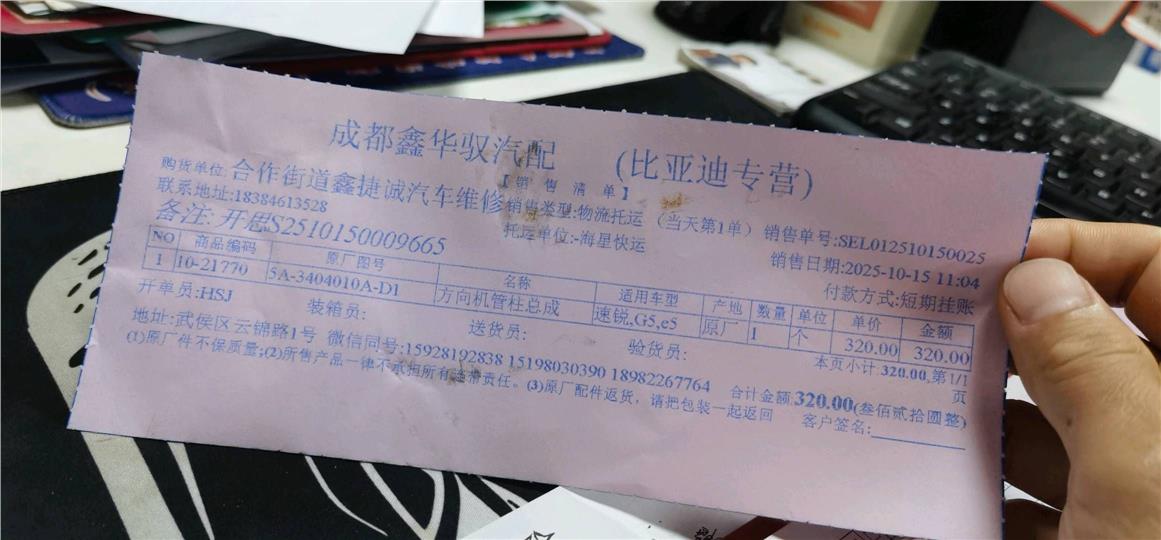 成都鑫华驭汽配 (比亚迪专营)
【销 售 清 单】
购货单位:合作街道鑫捷诚汽车维修 销售类型:物流托运 (当天第1单) 销售单号:SEL012510150025
联系地址:18384613528 托运单位:-海星快运 销售日期:2025-10-15 11:04
备注:开思S2510150009665 付款方式:短期挂账
NO 商品编码 原厂图号 名称 适用车型 产地 数量 单位 单价 金额
1 10-21770 5A-3404010A-D1 方向机管柱总成 速锐,G5,e5 原厂 1 个 320.00 320.00
本页小计:320.00,第1/1页
开单员:HSJ 装箱员: 送货员: 验货员: 合计金额:320.00(叁佰贰拾圆整)
地址:武侯区云锦路1号 微信同号:15928192838 15198030390 18982267764
(1)原厂件不保质量;(2)所售产品一律不承担所有连带责任。(3)原厂配件返货,请把包装一起返回 客户签名: